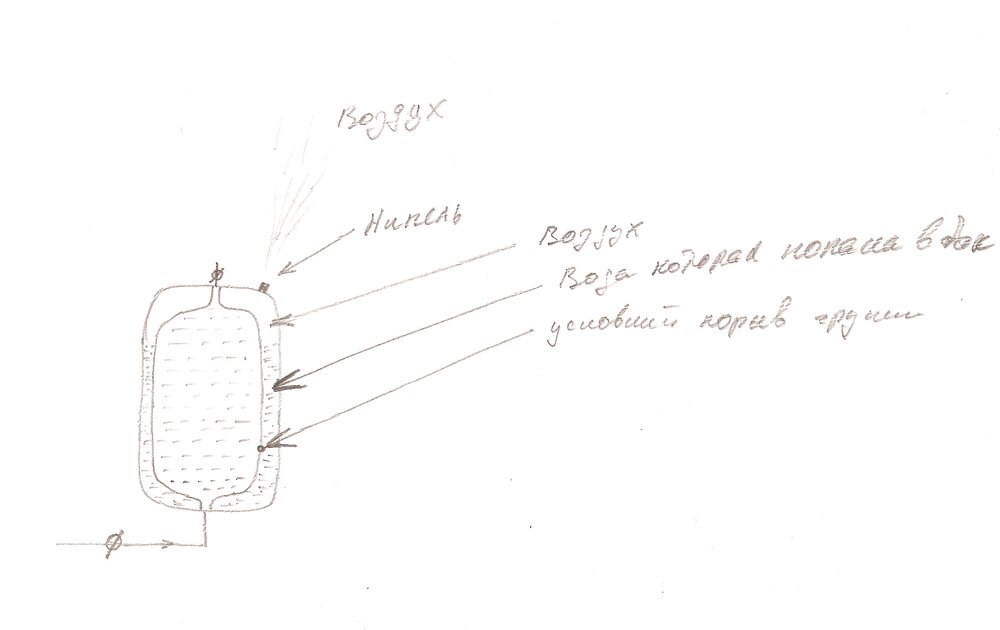 Воздух
Нипель
Воздух
Вода которая попала в бак
условний порыв груши